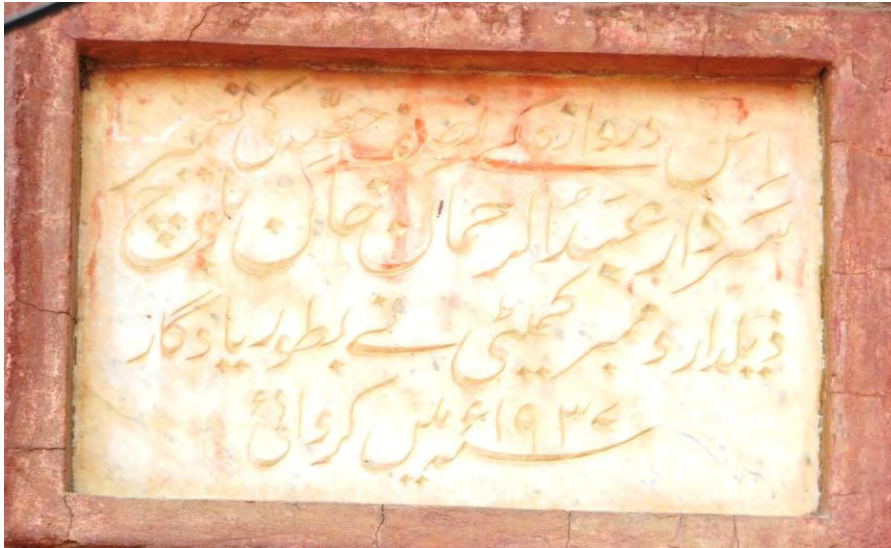 اس دروازہ کے نصف حصّہ کی تعمیر
سردار عبدُالرحمان خان بلوچ
ذیلدار و ممبر کمیٹی نے بطور یادگار
۱۹۳۷ء سنہ میں کروائی